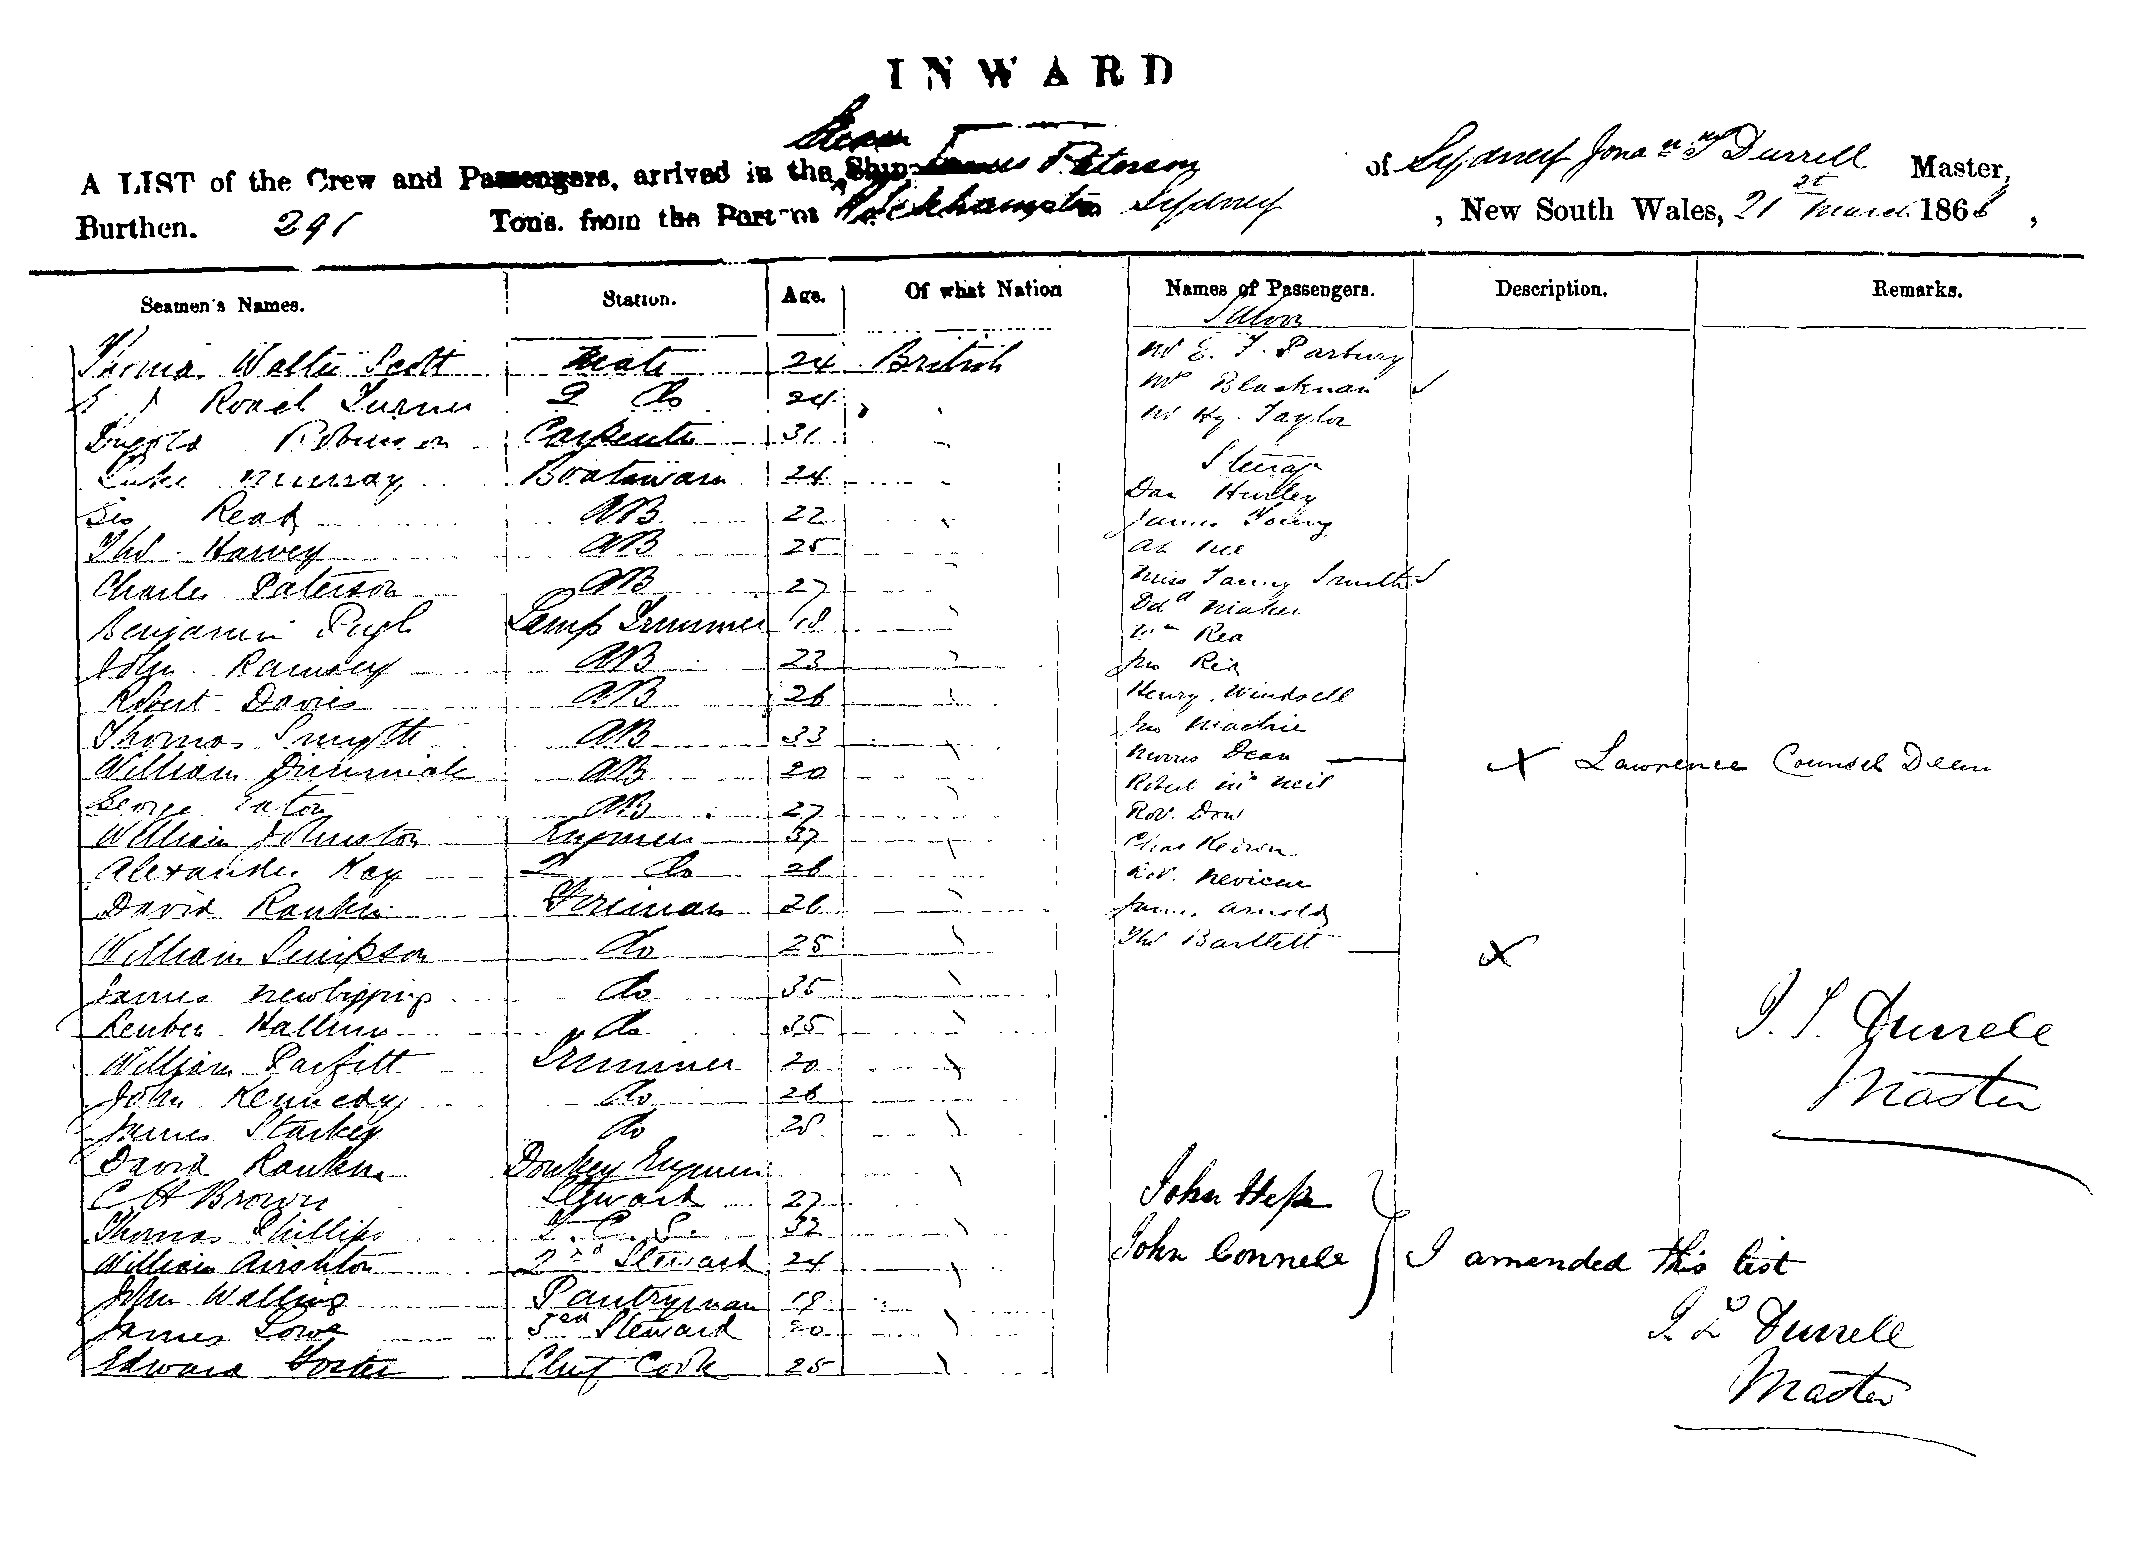 INWARD
Steam
A LIST of the Crew and Passengers, arrived in the Ship James Paterson of Sydney Jona n T Durrell Master,
Burthen. 291 Tons. from the Port of Rockhampton Sydney , New South Wales, 21st March 1868,
Seamen's Names. Station. Age. Of what Nation Names of Passengers. Description. Remarks.
Saloon
Thomas Walter Scott Mate 24 British Mr E. F. Parbury
Roach Turner 2 Do 24 Mr Blackman
Robinson Carpenter 31 Mr Hy. Taylor
Steerage
Luke Murray Boatswain 24 Dan Hurley
Geo Read AB 22 James Young
Thos Harvey AB 25 Ah
Charles Paterson AB 27 Miss Fanny Smith
Benjamin Pugh Lamp Trimmer 18 Maher
John Ramsey AB 23 Wm Rea
Jno Reid
Robert Davies AB 26 Henry Windsell
Thomas Smyth AB 33 Jno Mackie
William AB 20 Morris Dean X Lawrence Counsel Dean
George Eaton AB 27 Robert McNeil
William Johnston Engineer 37 Rob. Dow
Alexander Kay 2 Do 26 Chas
David Rankin Fireman 26 Rob.
William Simpson Do 25 James Arnold
Thos Bartlett X
James Newbigging Do 35
Reuben Do 35
William Parfitt Trimmer 20
John Kennedy Do 26
James Starkey Do 25
J. T. Durrell
Master
David Rankin Donkey Engineer
C H Brown Steward 27 John Hess
Thomas Phillips F. C. S. 32
William Airshton 2nd Steward 24 John Connell I amended this list
John Walling Pantryman 19
James Lowe 3rd Steward 20 J T Durrell
Edward Foster Chief Cook 25 Master